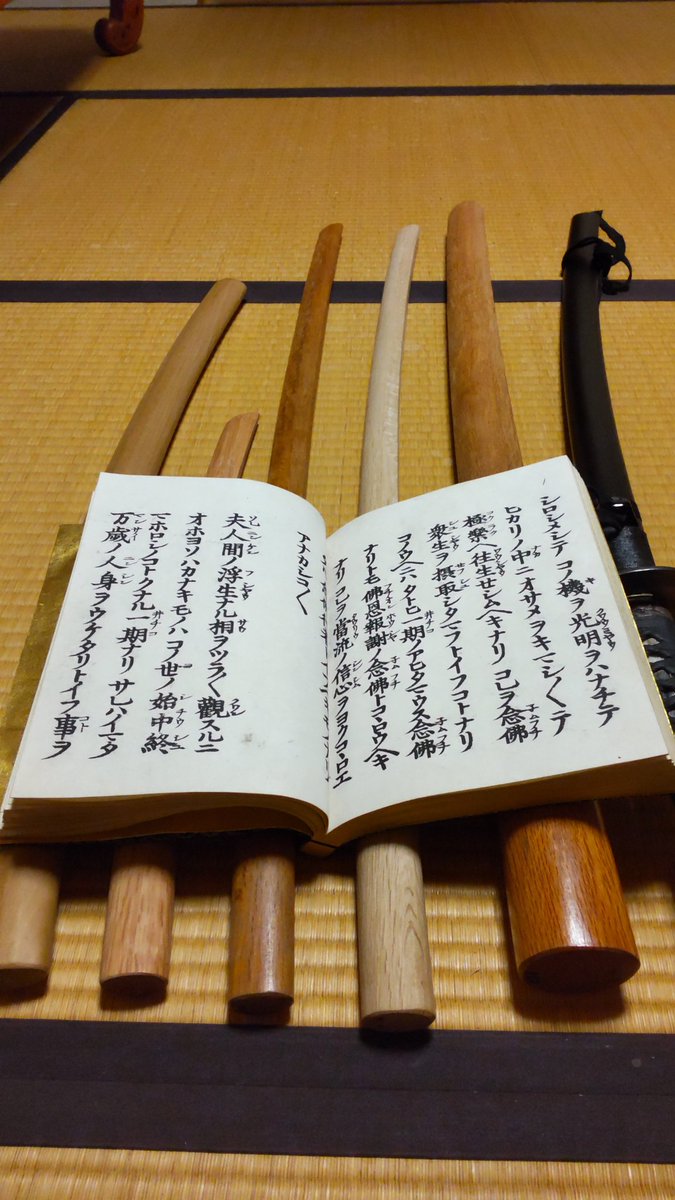 シロシメシテコノ機ヲ光明ヲハナチテ
ヒカリノ中ニオサメヲキマシ〱テ
極樂ヘ往生セシムヘキナリコレヲ念佛
衆生ヲ攝取シタマフトイフコトナリ
コノウヘニハタトヒ一期ノアヒタマウス念佛
ナリトモ佛恩報謝ノ念佛トコヽロウヘキ
ナリコレヲ當流ノ信心ヲヨクコヽロエ
アナカシコ〱
夫人間ノ浮生ナル相ヲツラ〱觀スルニ
オホヨソハカナキモノハコノ世ノ始中終
マホロシノコトクナル一期ナリサレハイマタ
万歳ノ人身ヲウケタリトイフ事ヲ